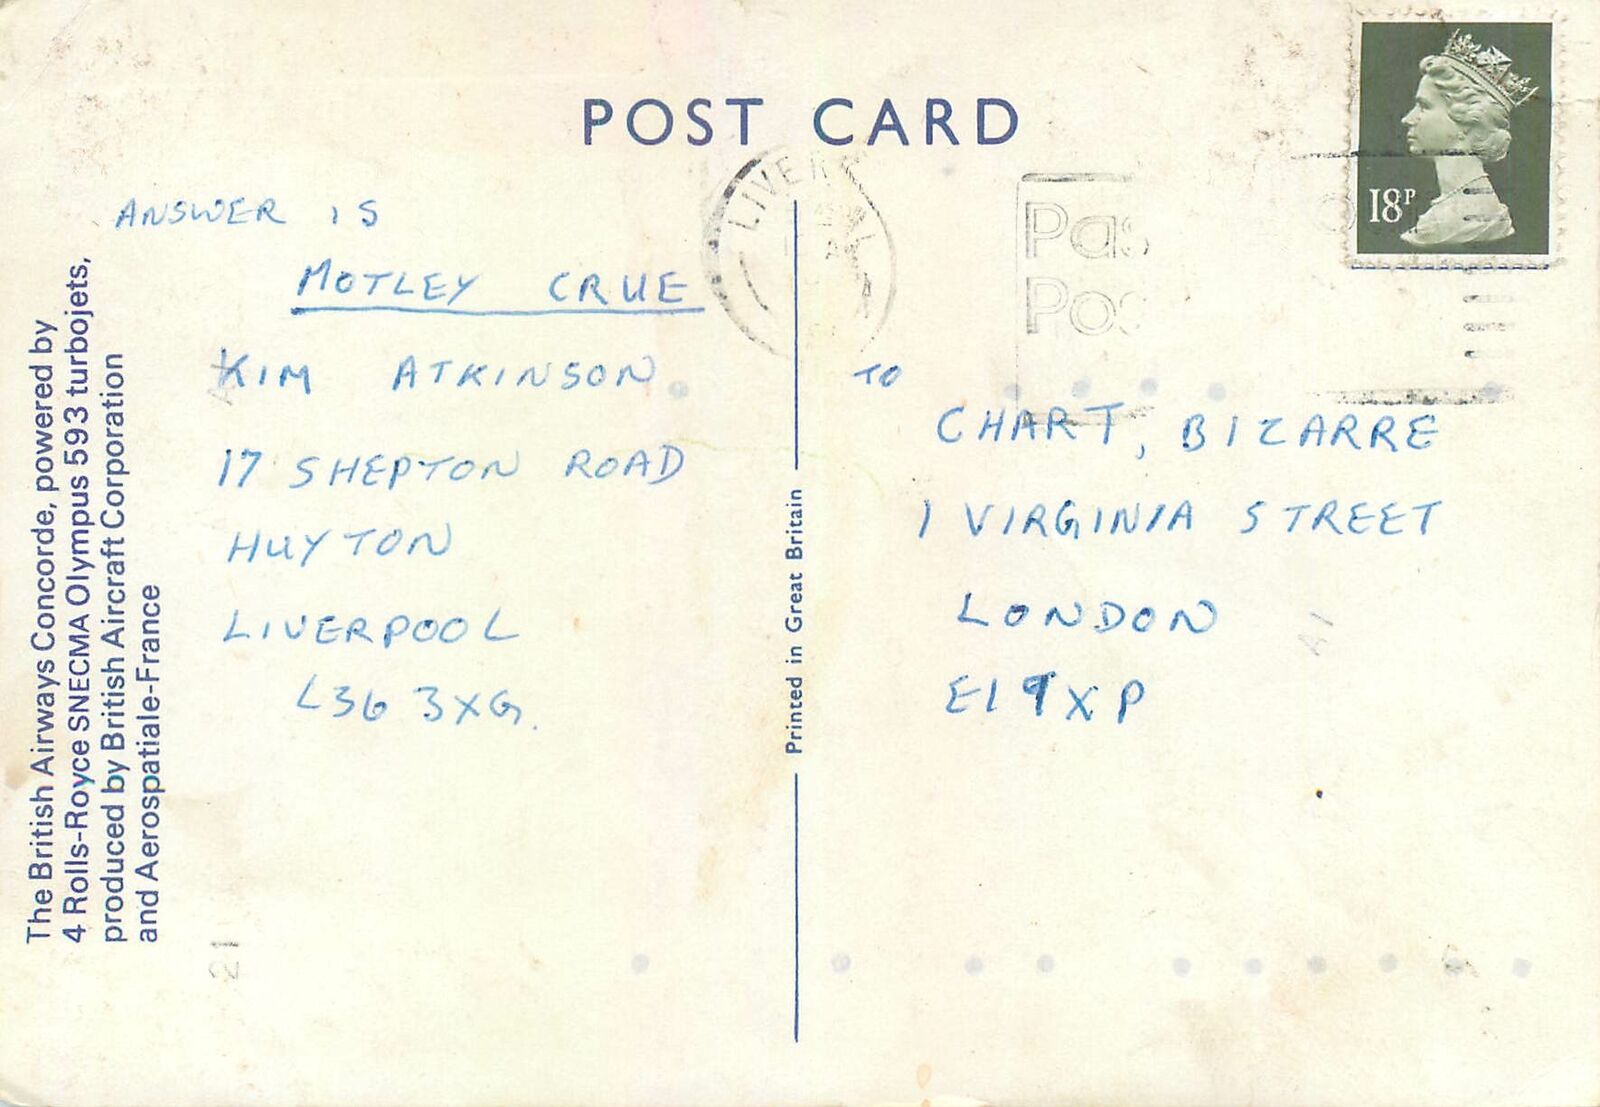 POST CARD
18P
LIVERPOOL
ANSWER IS
MOTLEY CRUE
KIM ATKINSON
17 SHEPTON ROAD
HUYTON
LIVERPOOL
L36 3XG.
TO
CHART, BIZARRE
1 VIRGINIA STREET
LONDON
E1 9XP
The British Airways Concorde, powered by
4 Rolls-Royce SNECMA Olympus 593 turbojets,
produced by British Aircraft Corporation
and Aerospatiale-France
Printed in Great Britain
21
A1